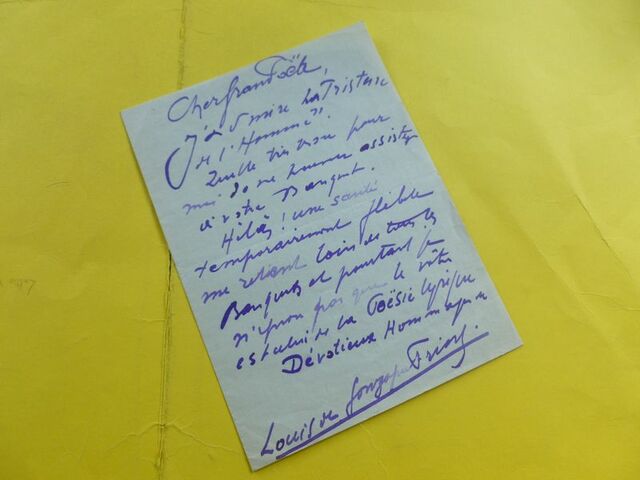 Cher Grand Poëte,
la Tristesse
de l'Homme".
Quelle tristesse pour
moi de ne pouvoir assister
à votre Banquet.
Hélas! une santé
temporairement faible
me retient loin de tous les
Banquets et pourtant je
n'ignore pas que le vôtre
est celui de la Poësie lyrique
Dévotieux Hommages de
Louis de Gonzague Frick.